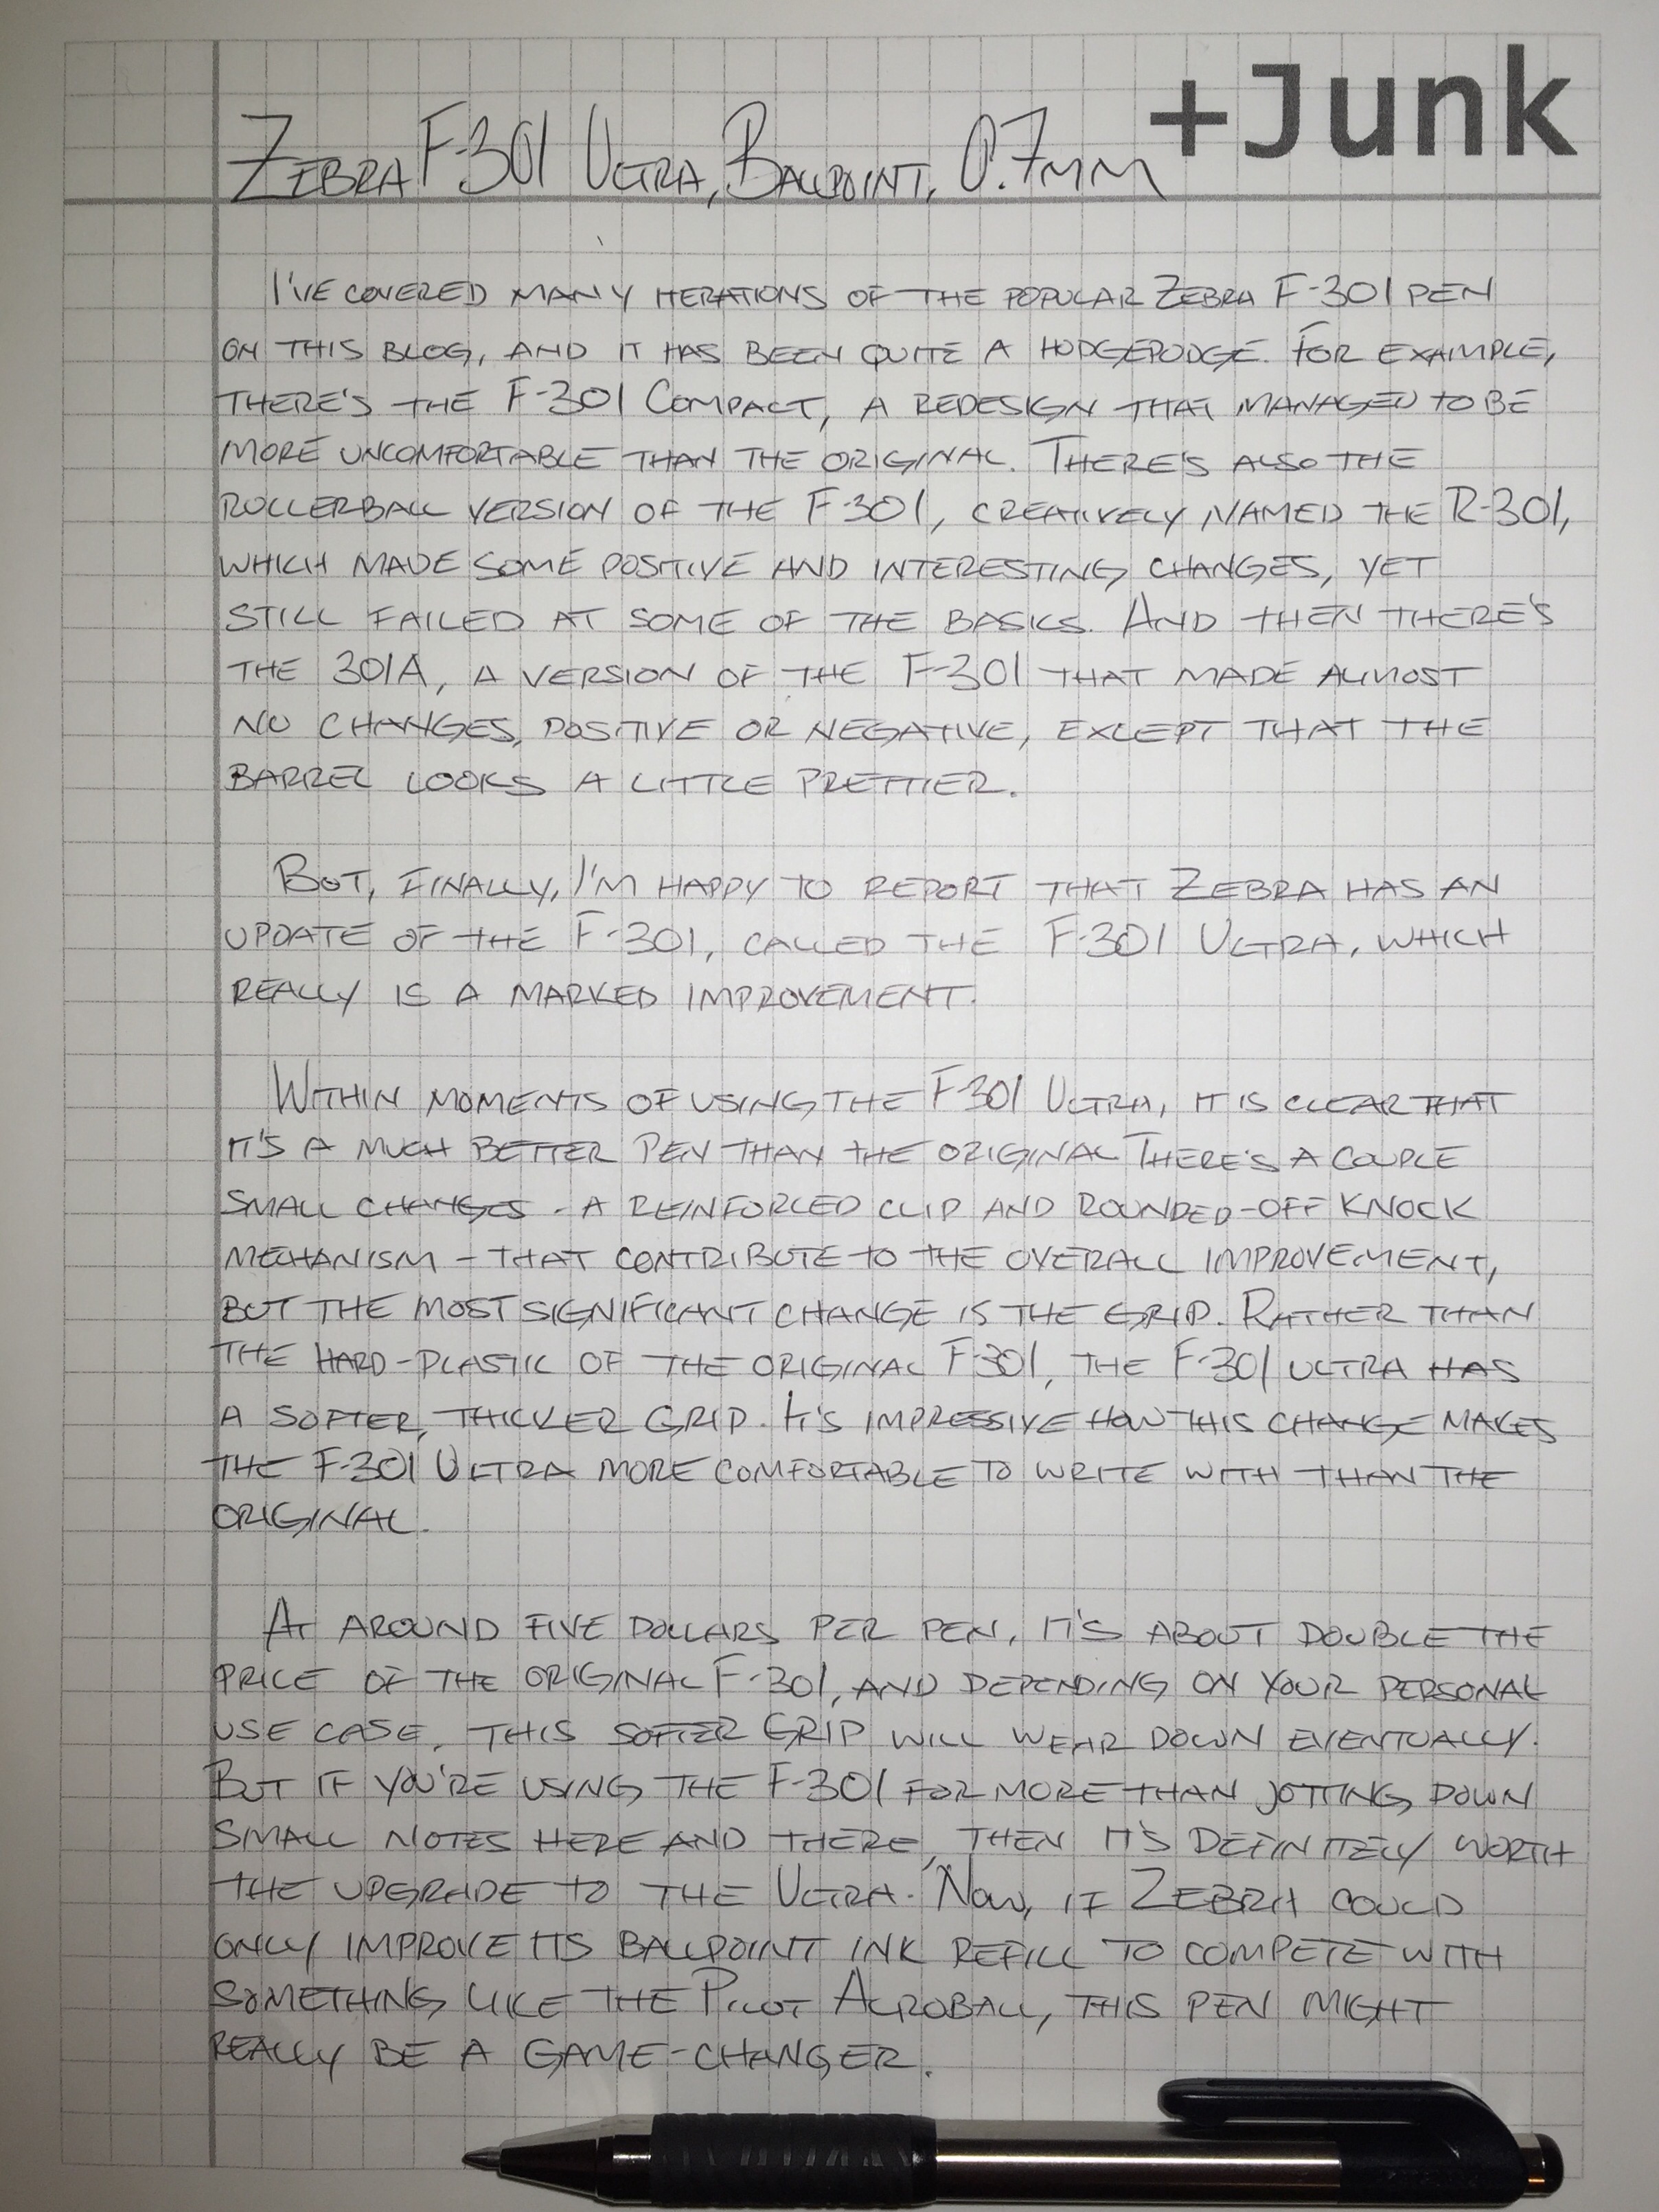 +Junk
Zebra F-301 Ultra, Ballpoint, 0.7mm
I've covered many iterations of the popular Zebra F-301 pen
on this blog, and it has been quite a hodgepodge. For example,
there's the F-301 Compact, a redesign that managed to be
more uncomfortable than the original. There's also the
rollerball version of the F-301, creatively named the R-301,
which made some positive and interesting changes, yet
still failed at some of the basics. And then there's
the 301A, a version of the F-301 that made almost
no changes, positive or negative, except that the
barrel looks a little prettier.
But, finally, I'm happy to report that Zebra has an
update of the F-301, called the F-301 Ultra, which
really is a marked improvement.
Within moments of using the F-301 Ultra, it is clear that
it's a much better pen than the original There's a couple
small changes - a reinforced clip and rounded-off knock
mechanism - that contribute to the overall improvement,
but the most significant change is the grip. Rather than
the hard-plastic of the original F-301, the F-301 ultra has
a softer, thicker grip. It's impressive how this change makes
the F-301 Ultra more comfortable to write with than the
original.
At around five dollars per pen, it's about double the
price of the original F-301, and depending on your personal
use case, this softer grip will wear down eventually.
But if you're using the F-301 for more than jotting down
small notes here and there, then it's definitely worth
the upgrade to the Ultra. Now, if Zebra could
only improve its ballpoint ink refill to compete with
something like the Pilot Acroball, this pen might
really be a game-changer.